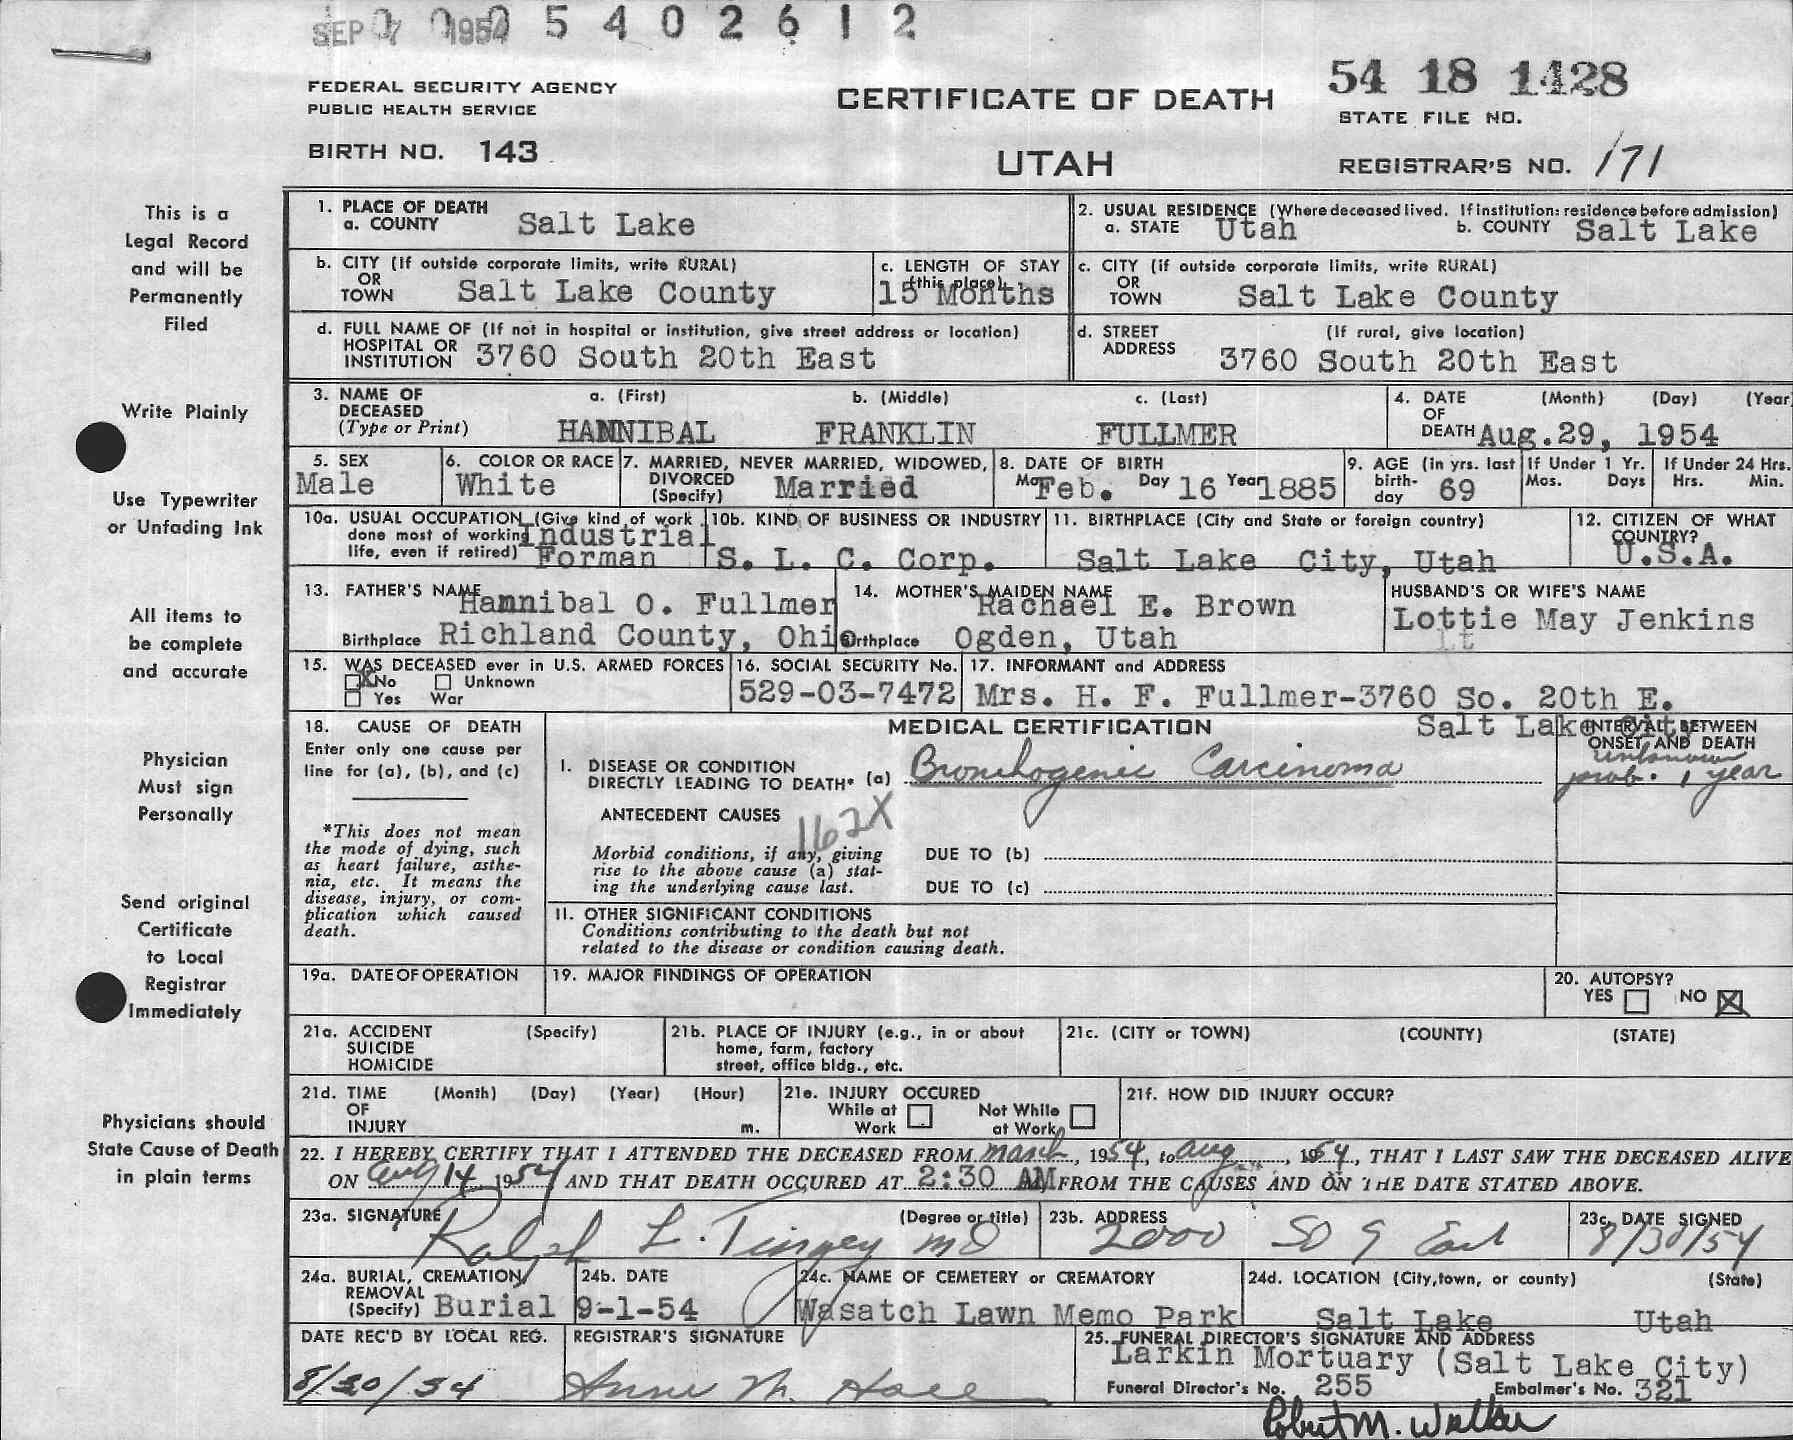 SEP 7 1954 0 0 0 5 4 0 2 6 1 2
FEDERAL SECURITY AGENCY
PUBLIC HEALTH SERVICE
BIRTH NO. 143
CERTIFICATE OF DEATH
UTAH
54 18 1428
STATE FILE NO.
REGISTRAR'S NO. 171
This is a
Legal Record
and will be
Permanently
Filed
Write Plainly
Use Typewriter
or Unfading Ink
All items to
be complete
and accurate
Physician
Must sign
Personally
Send original
Certificate
to Local
Registrar
Immediately
Physicians should
State Cause of Death
in plain terms
1. PLACE OF DEATH
a. COUNTY Salt Lake
2. USUAL RESIDENCE (Where deceased lived. If institution: residence before admission)
a. STATE Utah b. COUNTY Salt Lake
b. CITY (If outside corporate limits, write RURAL)
OR
TOWN Salt Lake County
c. LENGTH OF STAY
(this place)
15 Months
c. CITY (if outside corporate limits, write RURAL)
OR
TOWN Salt Lake County
d. FULL NAME OF (If not in hospital or institution, give street address or location)
HOSPITAL OR
INSTITUTION 3760 South 20th East
d. STREET (If rural, give location)
ADDRESS 3760 South 20th East
3. NAME OF a. (First) b. (Middle) c. (Last)
DECEASED
(Type or Print) HANNIBAL FRANKLIN FULLMER
4. DATE (Month) (Day) (Year
OF
DEATH Aug.29, 1954
5. SEX
Male
6. COLOR OR RACE
White
7. MARRIED, NEVER MARRIED, WIDOWED,
DIVORCED
(Specify) Married
8. DATE OF BIRTH
Mo Feb. Day 16 Year 1885
9. AGE (in yrs. last
birth-
day 69
If Under 1 Yr.
Mos. Days
If Under 24 Hrs.
Hrs. Min.
10a. USUAL OCCUPATION (Give kind of work
done most of working
life, even if retired) Industrial
Forman
10b. KIND OF BUSINESS OR INDUSTRY
S. L. C. Corp.
11. BIRTHPLACE (City and State or foreign country)
Salt Lake City, Utah
12. CITIZEN OF WHAT
COUNTRY?
U.S.A.
13. FATHER'S NAME Hannibal O. Fullmer
Birthplace Richland County, Ohio
14. MOTHER'S MAIDEN NAME
Rachael E. Brown
Birthplace Ogden, Utah
HUSBAND'S OR WIFE'S NAME
Lottie May Jenkins
Lt
15. WAS DECEASED ever in U.S. ARMED FORCES
X No Unknown
Yes War
16. SOCIAL SECURITY No.
529-03-7472
17. INFORMANT and ADDRESS
Mrs. H. F. Fullmer-3760 So. 20th E.
Salt Lake City
18. CAUSE OF DEATH
Enter only one cause per
line for (a), (b), and (c)
*This does not mean
the mode of dying, such
as heart failure, asthe-
nia, etc. It means the
disease, injury, or com-
plication which caused
death.
MEDICAL CERTIFICATION
INTERVAL BETWEEN
ONSET AND DEATH
unknown
prob. 1 year
I. DISEASE OR CONDITION
DIRECTLY LEADING TO DEATH* (a) Bronchogenic Carcinoma
ANTECEDENT CAUSES
162X
Morbid conditions, if any, giving
rise to the above cause (a) stat-
ing the underlying cause last.
DUE TO (b)
DUE TO (c)
II. OTHER SIGNIFICANT CONDITIONS
Conditions contributing to the death but not
related to the disease or condition causing death.
19a. DATE OF OPERATION
19. MAJOR FINDINGS OF OPERATION
20. AUTOPSY?
YES NO X
21a. ACCIDENT (Specify)
SUICIDE
HOMICIDE
21b. PLACE OF INJURY (e.g., in or about
home, farm, factory
street, office bldg., etc.
21c. (CITY or TOWN) (COUNTY) (STATE)
21d. TIME (Month) (Day) (Year) (Hour)
OF
INJURY m.
21e. INJURY OCCURED
While at Not While
Work at Work
21f. HOW DID INJURY OCCUR?
22. I HEREBY CERTIFY THAT I ATTENDED THE DECEASED FROM march, 1954, to aug, 1954, THAT I LAST SAW THE DECEASED ALIVE
ON aug 14 1954 AND THAT DEATH OCCURED AT 2:30 AM FROM THE CAUSES AND ON THE DATE STATED ABOVE.
23a. SIGNATURE (Degree or title)
Ralph L. Tingey MD
23b. ADDRESS
2000 SO 9 East
23c. DATE SIGNED
8/30/54
24a. BURIAL, CREMATION,
REMOVAL
(Specify) Burial
24b. DATE
9-1-54
24c. NAME OF CEMETERY or CREMATORY
Wasatch Lawn Memo Park
24d. LOCATION (City, town, or county) (State)
Salt Lake Utah
DATE REC'D BY LOCAL REG.
8/30/54
REGISTRAR'S SIGNATURE
Anne M.
25. FUNERAL DIRECTOR'S SIGNATURE AND ADDRESS
Larkin Mortuary (Salt Lake City)
Funeral Director's No. 255 Embalmer's No. 321
Robert M. Walker